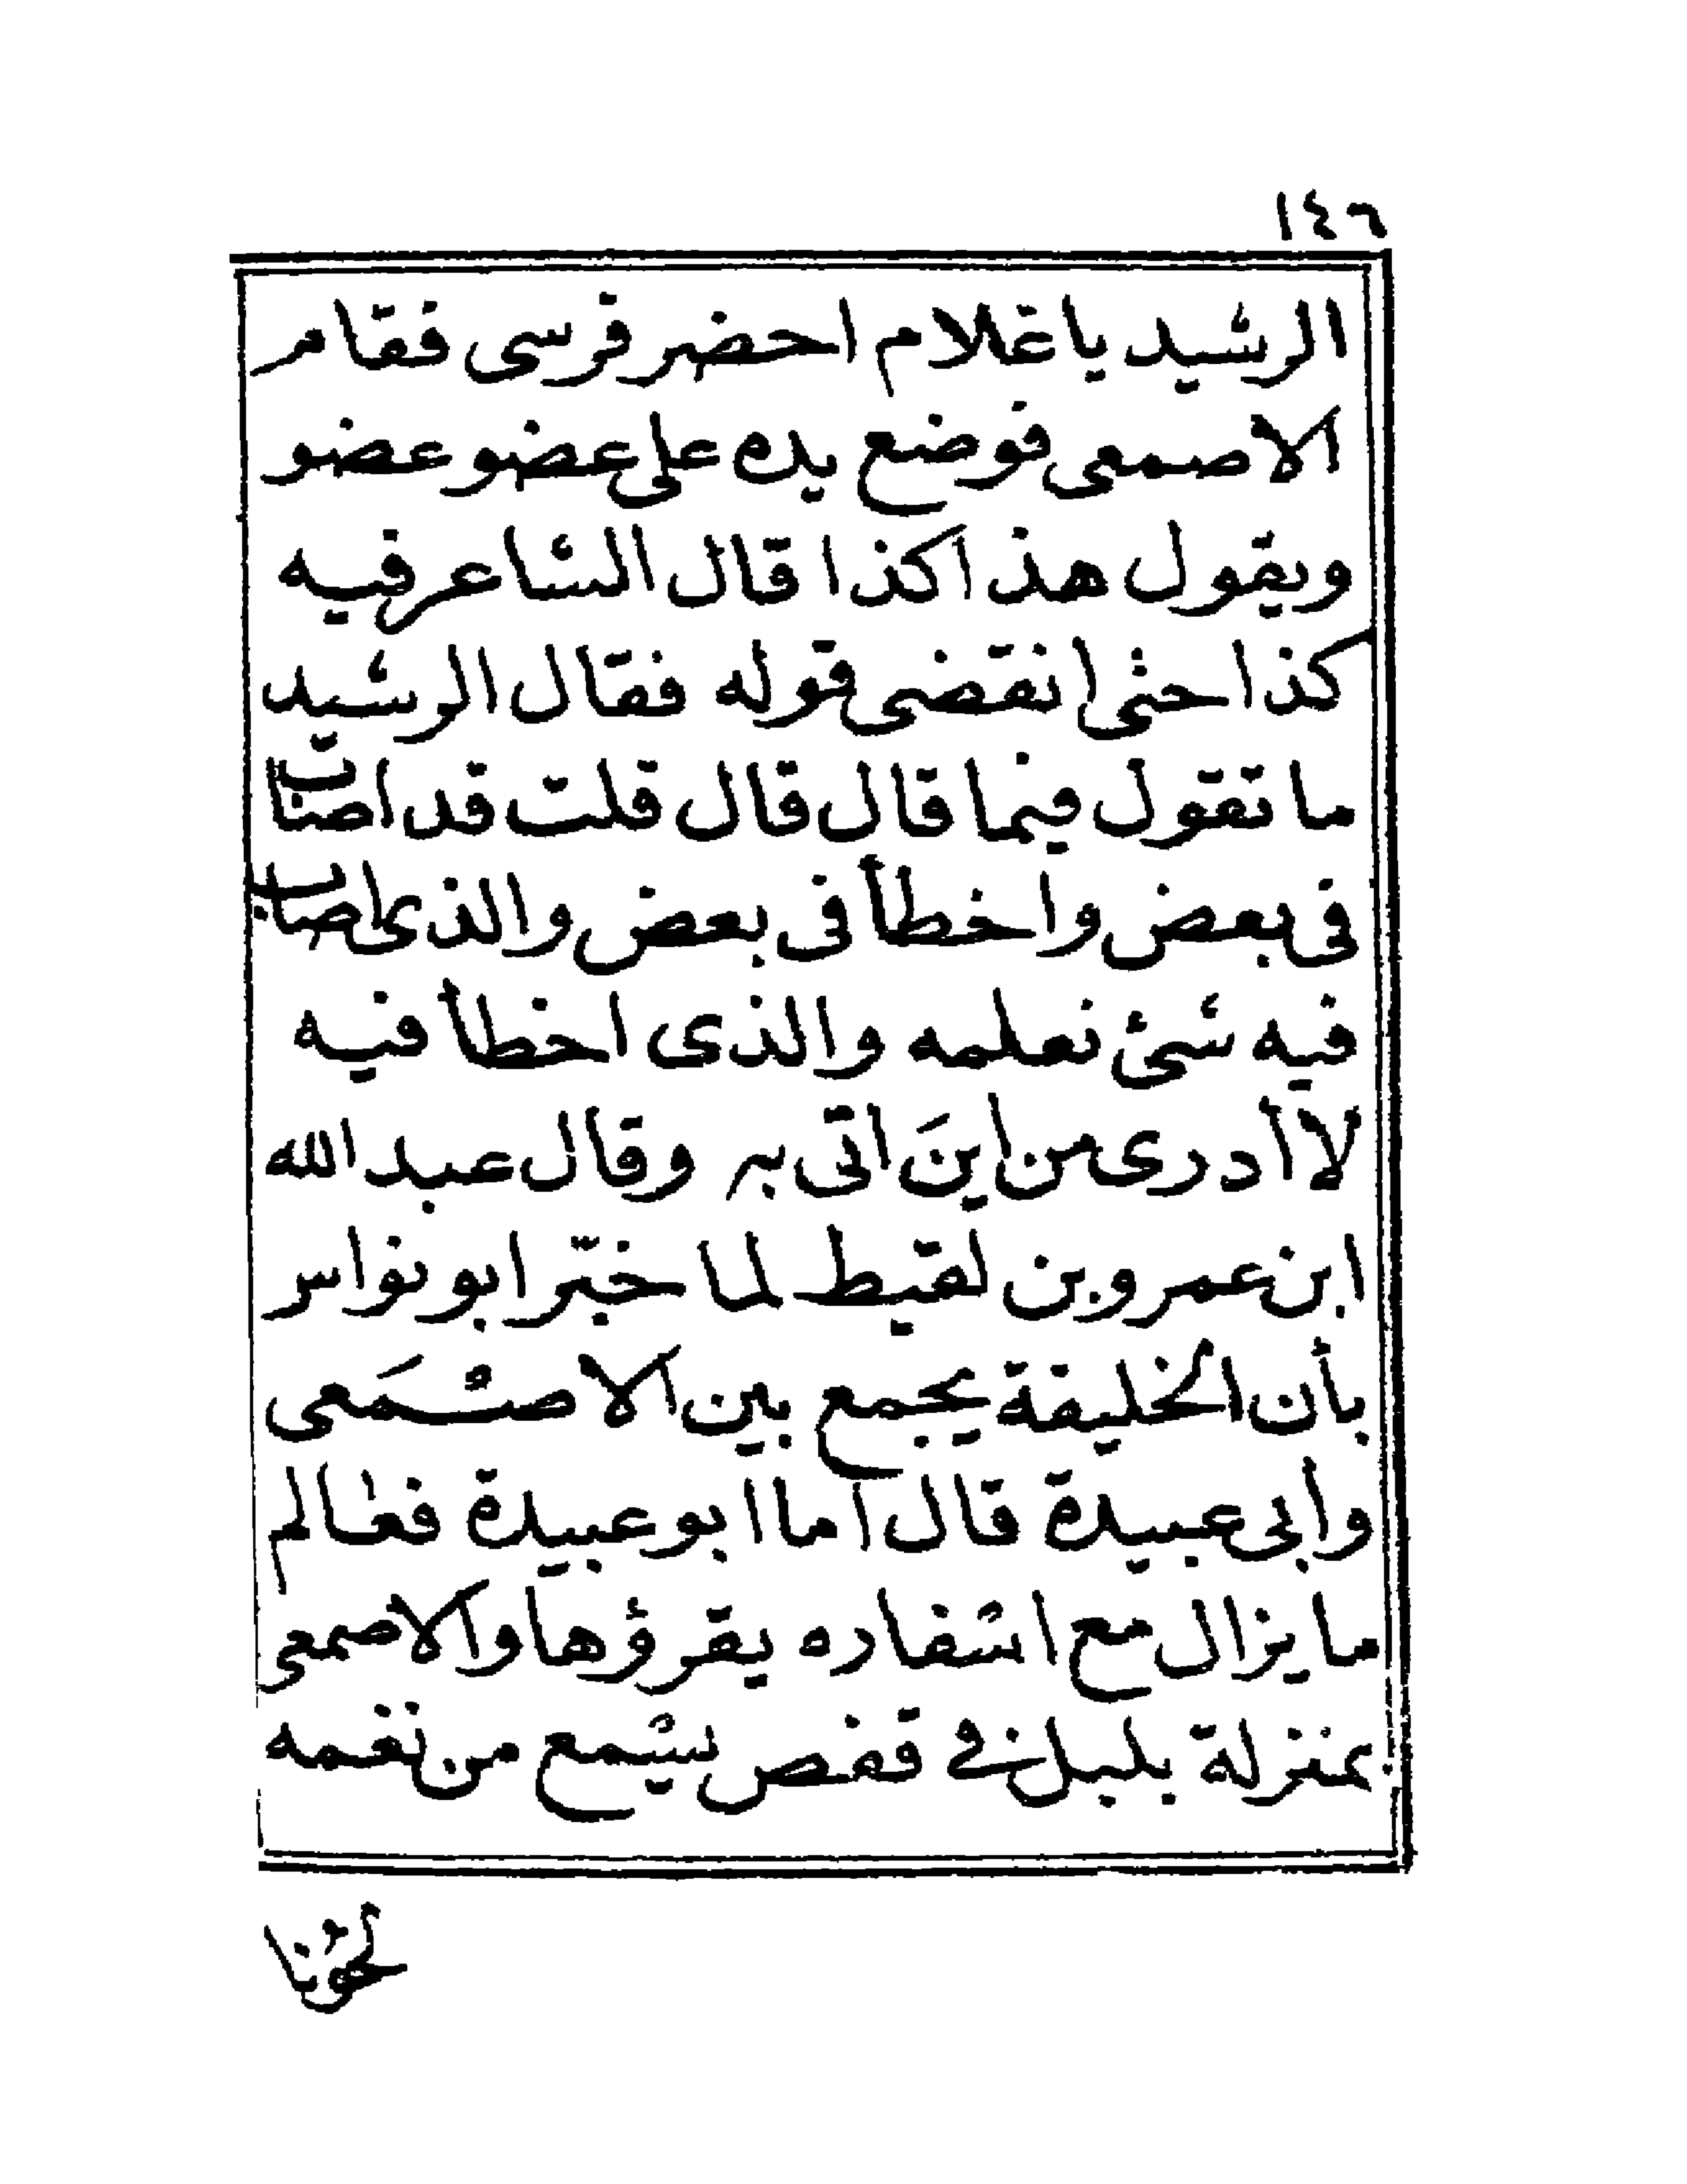 ١٤٦
الرشيد يا غلام احضر فرسى فقام
الاصمعى فوضع يده على عضو عضو
ويقول هذا كذا قال الشاعر فيه
كذا حتى انقضى قوله فقال الرشيد
ما تقول فيما قال قال قلت قد اصاب
فى بعض واخطأ فى بعض والذى اصاب
فيه شئ نعلمه والذى اخطأ فيه
لا أدرى من اينَ اتى به وقال عبد الله
ابن عمرو بن لقيط لما خبّر ابو نواس
بأن الخليفة يجمع بين الاصْمَعى
وأبى عبيدة قال اما ابو عبيدة فعالم
ما يزال مع اسْفاره يقرؤها والاصمعى
بمنزلة بلبل فى قفص يسْمع من نغمه
لحوْنا